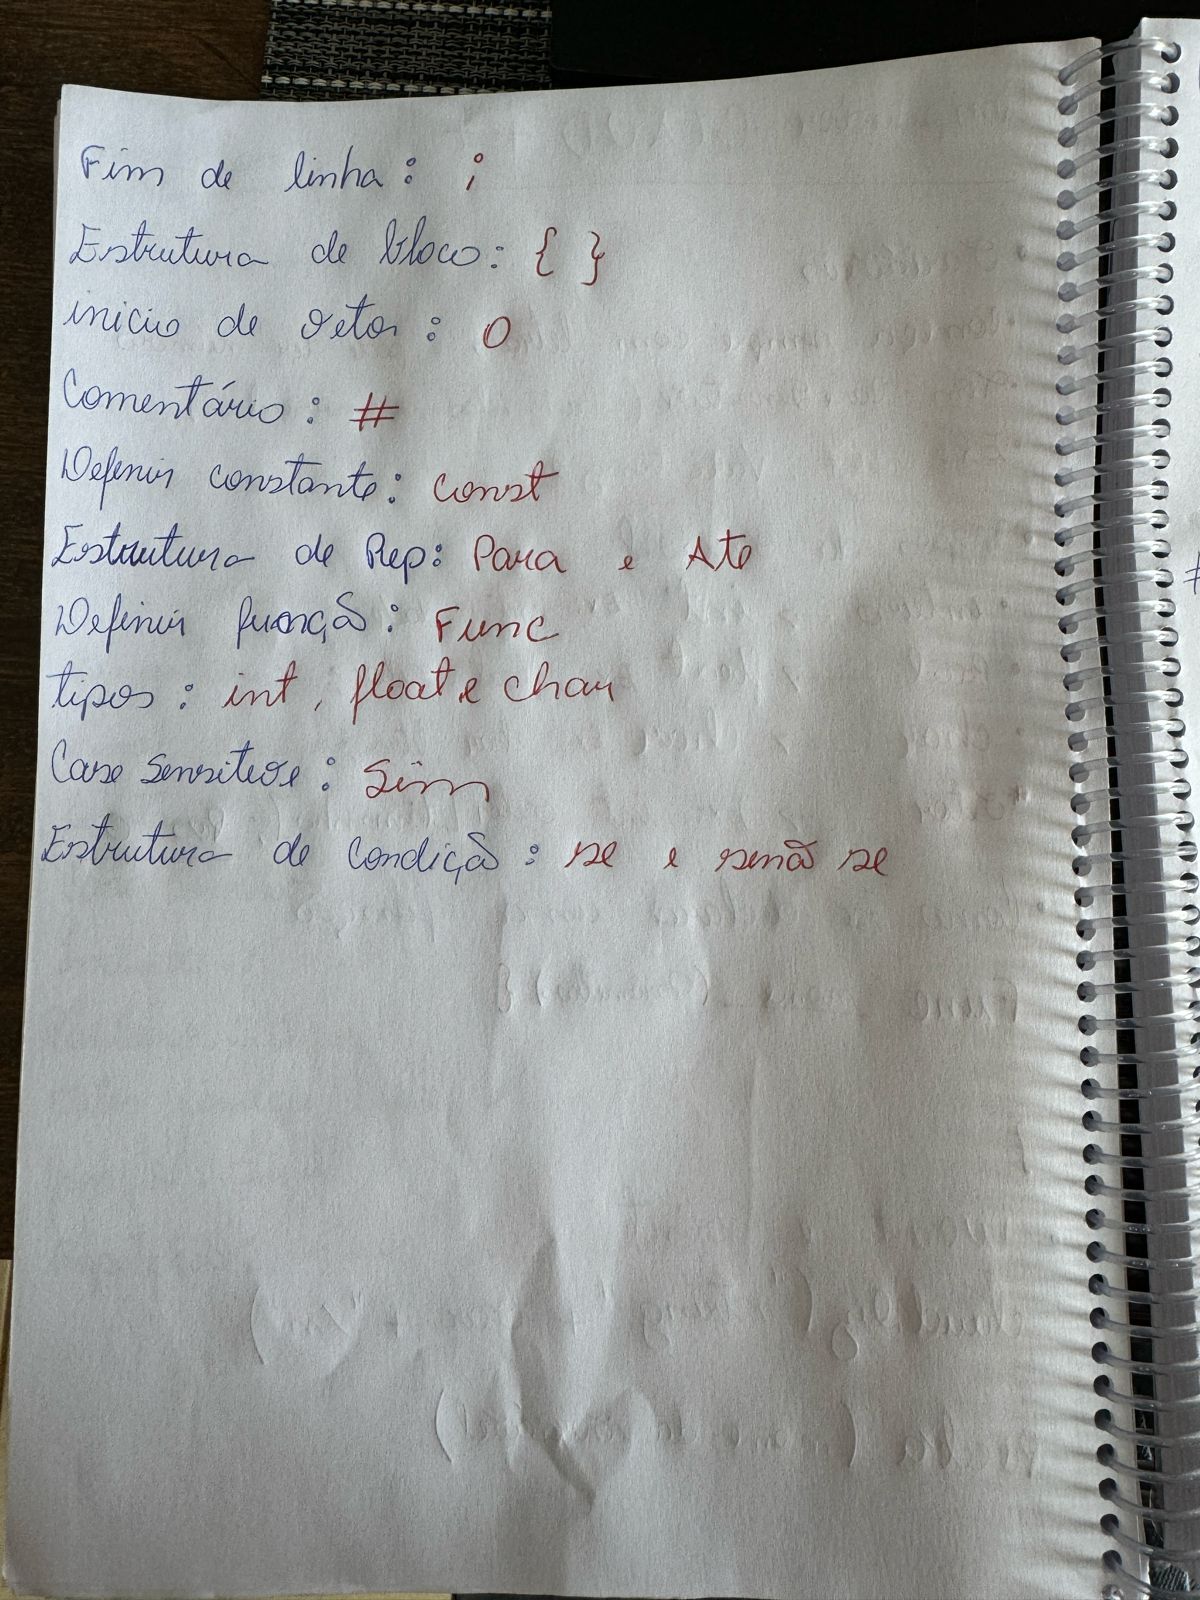 Fim de linha : ;
Estrutura de bloco : { }
inicio de vetor : 0
Comentário : #
Definir constante : const
Estrutura de Rep : Para e Ate
Definir função : Func
tipos : int , float e char
Case sensitive : Sim
Estrutura de condição : se e senão se